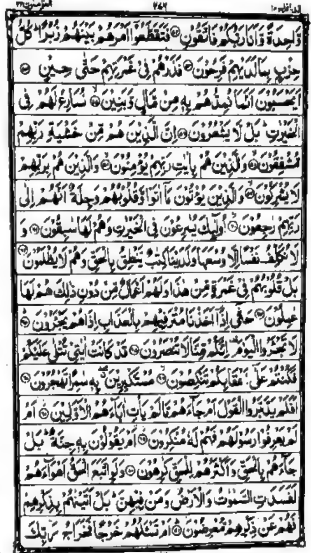 قد افلح ١٨ ٢٤٧ المؤمنون ٢٣
وَّاحِدَةً وَّاَنَا رَبُّكُمْ فَاتَّقُوْنِ ﴿٥٢﴾ فَتَقَطَّعُوْٓا اَمْرَهُمْ بَيْنَهُمْ زُبُرًا ؕ كُلُّ
حِزْبٍۭ بِمَا لَدَيْهِمْ فَرِحُوْنَ ﴿٥٣﴾ فَذَرْهُمْ فِيْ غَمْرَتِهِمْ حَتّٰى حِيْنٍ ﴿٥٤﴾
اَيَحْسَبُوْنَ اَنَّمَا نُمِدُّهُمْ بِهٖ مِنْ مَّالٍ وَّبَنِيْنَ ﴿٥٥﴾ نُسَارِعُ لَهُمْ فِي
الْخَيْرٰتِ ؕ بَلْ لَّا يَشْعُرُوْنَ ﴿٥٦﴾ اِنَّ الَّذِيْنَ هُمْ مِّنْ خَشْيَةِ رَبِّهِمْ
مُّشْفِقُوْنَ ﴿٥٧﴾ وَالَّذِيْنَ هُمْ بِاٰيٰتِ رَبِّهِمْ يُؤْمِنُوْنَ ﴿٥٨﴾ وَالَّذِيْنَ هُمْ بِرَبِّهِمْ
لَا يُشْرِكُوْنَ ﴿٥٩﴾ وَالَّذِيْنَ يُؤْتُوْنَ مَآ اٰتَوْا وَّقُلُوْبُهُمْ وَجِلَةٌ اَنَّهُمْ اِلٰى
رَبِّهِمْ رٰجِعُوْنَ ﴿٦٠﴾ اُولٰٓئِكَ يُسٰرِعُوْنَ فِي الْخَيْرٰتِ وَهُمْ لَهَا سٰبِقُوْنَ ﴿٦١﴾ وَ
لَا نُكَلِّفُ نَفْسًا اِلَّا وُسْعَهَا وَلَدَيْنَا كِتٰبٌ يَّنْطِقُ بِالْحَقِّ وَهُمْ لَا يُظْلَمُوْنَ ﴿٦٢﴾
بَلْ قُلُوْبُهُمْ فِيْ غَمْرَةٍ مِّنْ هٰذَا وَلَهُمْ اَعْمَالٌ مِّنْ دُوْنِ ذٰلِكَ هُمْ لَهَا
عٰمِلُوْنَ ﴿٦٣﴾ حَتّٰٓى اِذَآ اَخَذْنَا مُتْرَفِيْهِمْ بِالْعَذَابِ اِذَا هُمْ يَجْـَٔرُوْنَ ﴿٦٤﴾
لَا تَجْـَٔرُوا الْيَوْمَ اِنَّكُمْ مِّنَّا لَا تُنْصَرُوْنَ ﴿٦٥﴾ قَدْ كَانَتْ اٰيٰتِيْ تُتْلٰى عَلَيْكُمْ
فَكُنْتُمْ عَلٰٓى اَعْقَابِكُمْ تَنْكِصُوْنَ ﴿٦٦﴾ مُسْتَكْبِرِيْنَ بِهٖ سٰمِرًا تَهْجُرُوْنَ ﴿٦٧﴾
اَفَلَمْ يَدَّبَّرُوا الْقَوْلَ اَمْ جَآءَهُمْ مَّا لَمْ يَاْتِ اٰبَآءَهُمُ الْاَوَّلِيْنَ ﴿٦٨﴾ اَمْ
لَمْ يَعْرِفُوْا رَسُوْلَهُمْ فَهُمْ لَهٗ مُنْكِرُوْنَ ﴿٦٩﴾ اَمْ يَقُوْلُوْنَ بِهٖ جِنَّةٌ ؕ بَلْ
جَآءَهُمْ بِالْحَقِّ وَاَكْثَرُهُمْ لِلْحَقِّ كٰرِهُوْنَ ﴿٧٠﴾ وَلَوِ اتَّبَعَ الْحَقُّ اَهْوَآءَهُمْ
لَفَسَدَتِ السَّمٰوٰتُ وَالْاَرْضُ وَمَنْ فِيْهِنَّ ؕ بَلْ اَتَيْنٰهُمْ بِذِكْرِهِمْ
فَهُمْ عَنْ ذِكْرِهِمْ مُّعْرِضُوْنَ ﴿٧١﴾ اَمْ تَسْـَٔلُهُمْ خَرْجًا فَخَرَاجُ رَبِّكَ